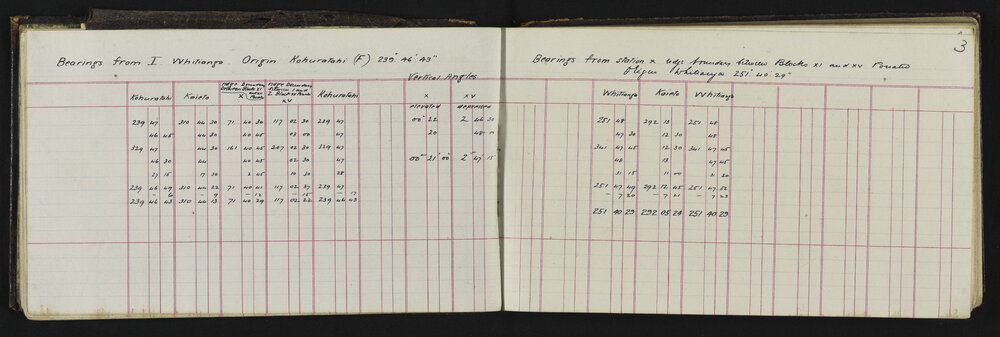 3
Bearings from I Whitianga Origin Kohuratahi (F) 239° 46' 43"
Vertical Angles
Kohuratahi Kaieto X XV Kohuratahi X XV
elevated depressed
239 47 310 44 30 71 40 30 117 02 30 239 47 00° 22 2 46 30
46 45 44 30 40 45 03 00 47 20 48
329 47 44 30 161 40 45 207 02 30 329 47
46 30 44 40 45 02 30 47 00° 21' 00 2° 47' 15
27 15 17 30 2 45 10 30 28
239 46 49 310 44 22 71 40 41 117 02 37 239 47
– 6 – 9 – 12 – 15 – 17
239 46 43 310 44 13 71 40 29 117 02 22 239 46 43
Bearings from station X ridge boundary between Blocks XI and XV Pouatu
Origin Whitianga 251° 40' 29"
Whitianga Kaieto Whitianga
251 48 292 13 251 48
47 30 12 30 48
341 47 45 12 30 341 47 45
48 13 47 45
31 15 11 00 31 20
251 47 49 292 12 45 251 47 52
– 7 20 – 7 21 – 7 23
251 40 29 292 05 24 251 40 29